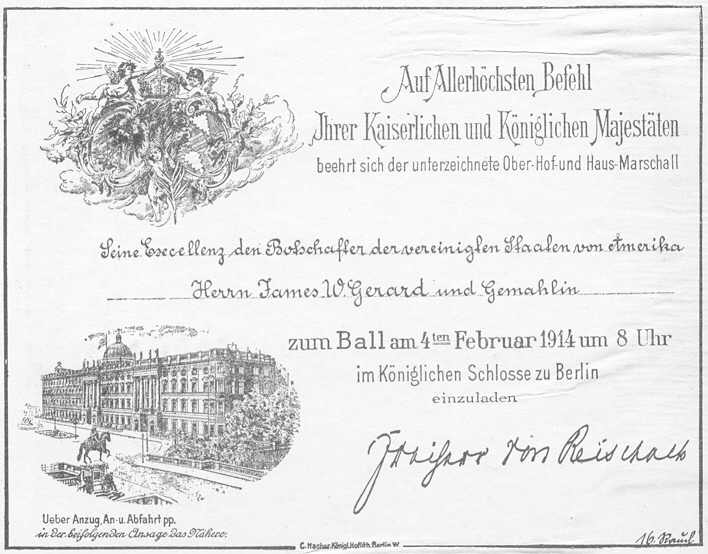 Auf Allerhöchsten Befehl
Ihrer Kaiserlichen und Königlichen Majestäten
beehrt sich der unterzeichnete Ober-Hof-und Haus-Marschall
Seine Excellenz den Botschafter der vereinigten Staaten von Amerika
Herrn James W. Gerard und Gemahlin
zum Ball am 4ten Februar 1914 um 8 Uhr
im Königlichen Schlosse zu Berlin
einzuladen
Freiherr von Reischach
Ueber Anzug, An- u. Abfahrt pp.
in der beifolgenden Ansage das Nähere.
Königl. Hoflith. Berlin W
16.